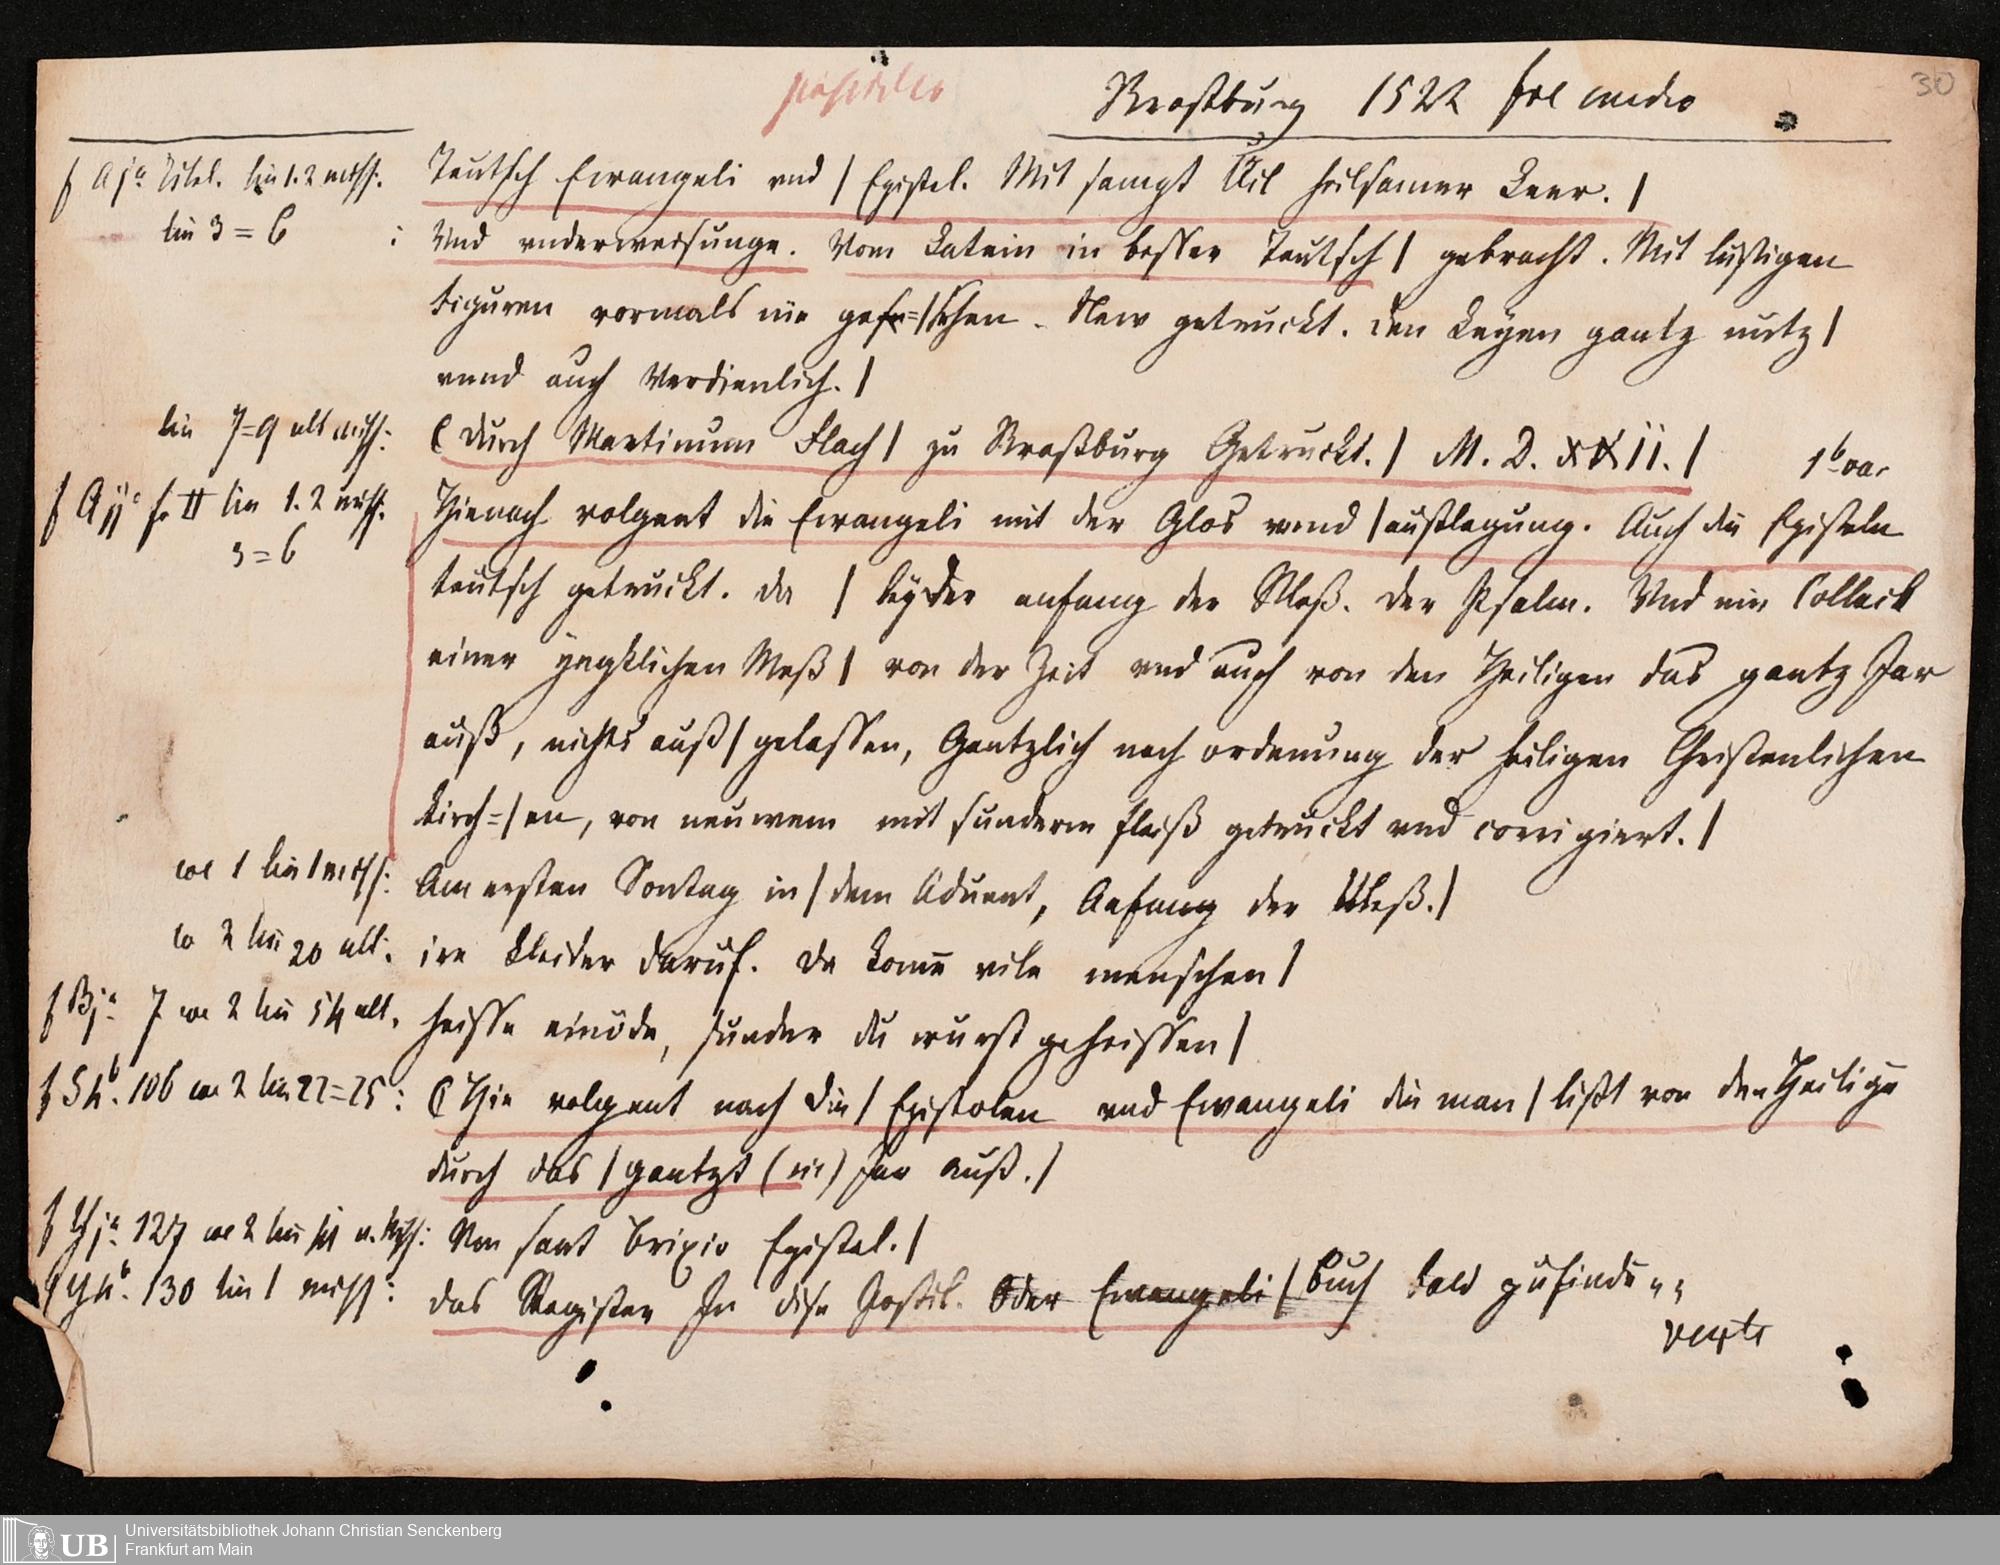 30
Straßburg 1522 fol medio
f Aja Titel. lin 1. 2 miss: Teutsch Ewangeli vnd | Epistel. Mit sampt Uil heilsamer Leer. |
lin 3 = 6 : Und vnderweisunge. Vom Latein in besser Teutsch | gebracht. Mit lustigen
Figuren vormals nie gese=|sehen. New getruckt. Den Leyen gantz nutz |
vnnd auch Verdienlich. |
lin 7=9 alt miss: C Durch Martinum Flach | zu Straßburg Getruckt. | M. D. XXII. | 1b va.
f Aija fo II lin 1. 2 miss. Hienach volgent die Ewangeli mit der Glos vnnd | außlegung. Auch die Episteln
3=6 teutsch getruckt. Da | by der anfang der Meß. Der Psalm. Vnd ein Collect
einer yegklichen Meß | von der Zeit vnd auch von den Heiligen das gantz Jar
auß, nichts auß | gelassen, Gantzlich nach ordenung der heiligen Christenlichen
kirch=|en, von neuwem mit sunderm fleiß getruckt vnd corrigiert. |
col 1 lin 1 miss: Am ersten Sontag in | dem Aduent, Anfang der Meß. |
co 2 lin 20 alt. ire kleider daruf. Da kome vile menschen |
f Bja 7 col 2 lin 54 alt. heisse einöde, sunder du wurst geheissen |
f S4b. 106 col 2 lin 22=25: C Hie volgent nach die | Epistolen vnd Ewangeli die man | lißt von den Heilige
durch das | gantzt (sic) Jar auß. |
f Yja 127 col 2 lin miss: Von sant Brixio Epistel. |
f Y4a. 130 lin 1 miss: Das Register In dise Postil. Oder Ewangeli | buch bald zufinde
verte
UB Universitätsbibliothek Johann Christian Senckenberg
Frankfurt am Main